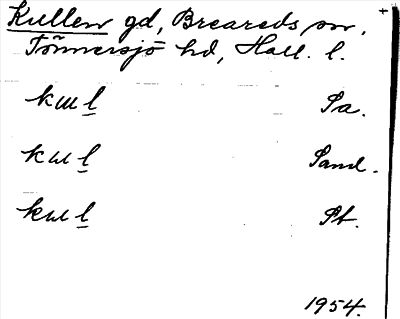 Kullen gd, Breareds sn.
Tönnersjö hd, Hall. l.
kɯl Sa.
kɯl Sand.
kɯl St.
1954.